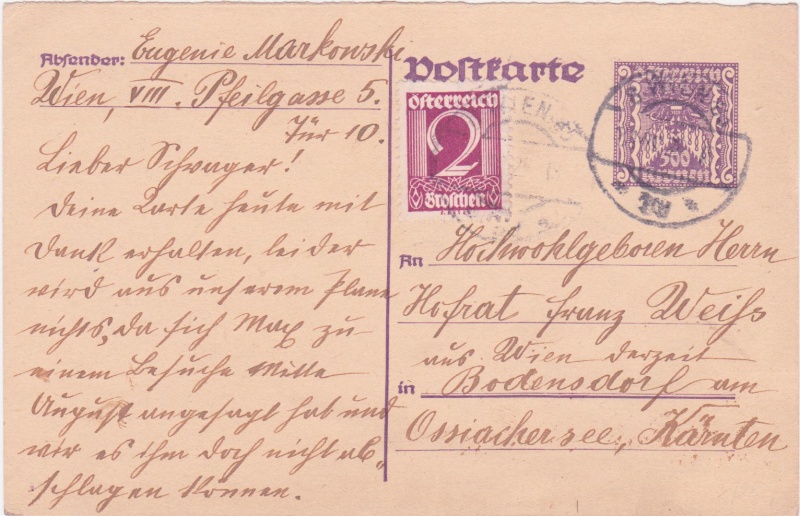 Absender: Eugenie Markowski
Wien, VIII. Pfeilgasse 5.
Tür 10.
Lieber Schvager!
Deine Karte heute mit
Dank erhalten, leider
wird aus unserem Plane
nichts, da sich Max zu
einem Besuche Mitte
August angesagt hab und
wir es ihm doch nicht ab=
schlagen können.
Postkarte
Österreich
2
Groschen
500
Kronen
WIEN
An Hochwohlgeboren Herrn
Hofrat Franz Weiss
aus Wien derzeit
in Bodensdorf am
Ossiachersee, Kärnten